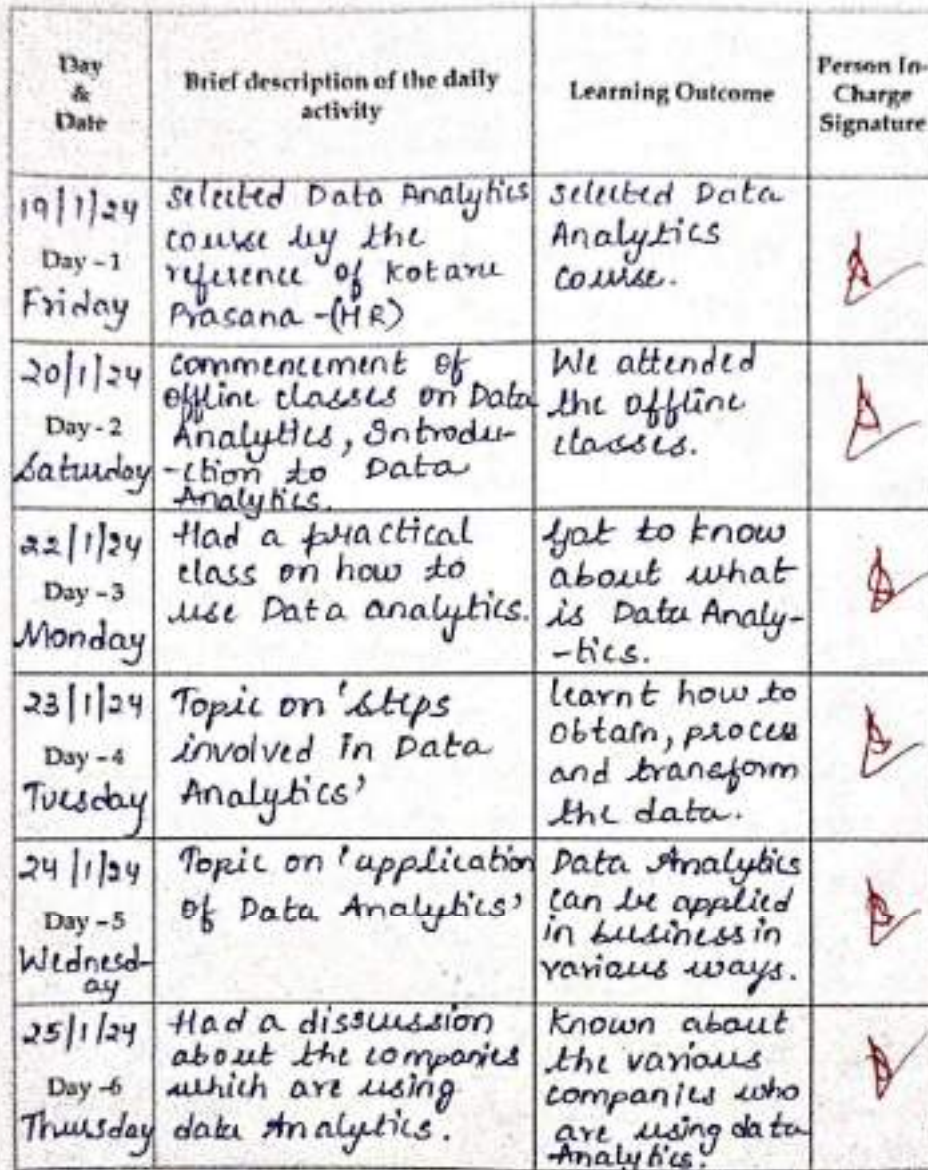 Day
&
Date
Brief description of the daily
activity
Learning Outcome
Person In-
Charge
Signature
19/1/24
Day - 1
Friday
selected Data Analytics
course by the
reference of Kotaru
Prasana -(HR)
selected Data
Analytics
course.
20/1/24
Day - 2
Saturday
commencement of
offline classes on Data
Analytics, Introdu-
-ction to Data
Analytics.
We attended
the offline
classes.
22/1/24
Day - 3
Monday
Had a practical
class on how to
use Data analytics.
Got to know
about what
is Data Analy-
-tics.
23/1/24
Day - 4
Tuesday
Topic on 'steps
involved in Data
Analytics'
learnt how to
obtain, process
and transform
the data.
24/1/24
Day - 5
Wednesd-
ay
Topic on 'application
of Data Analytics'
Data Analytics
can be applied
in business in
various ways.
25/1/24
Day - 6
Thursday
Had a disscussion
about the companies
which are using
data Analytics.
Known about
the various
companies who
are using data
Analytics.